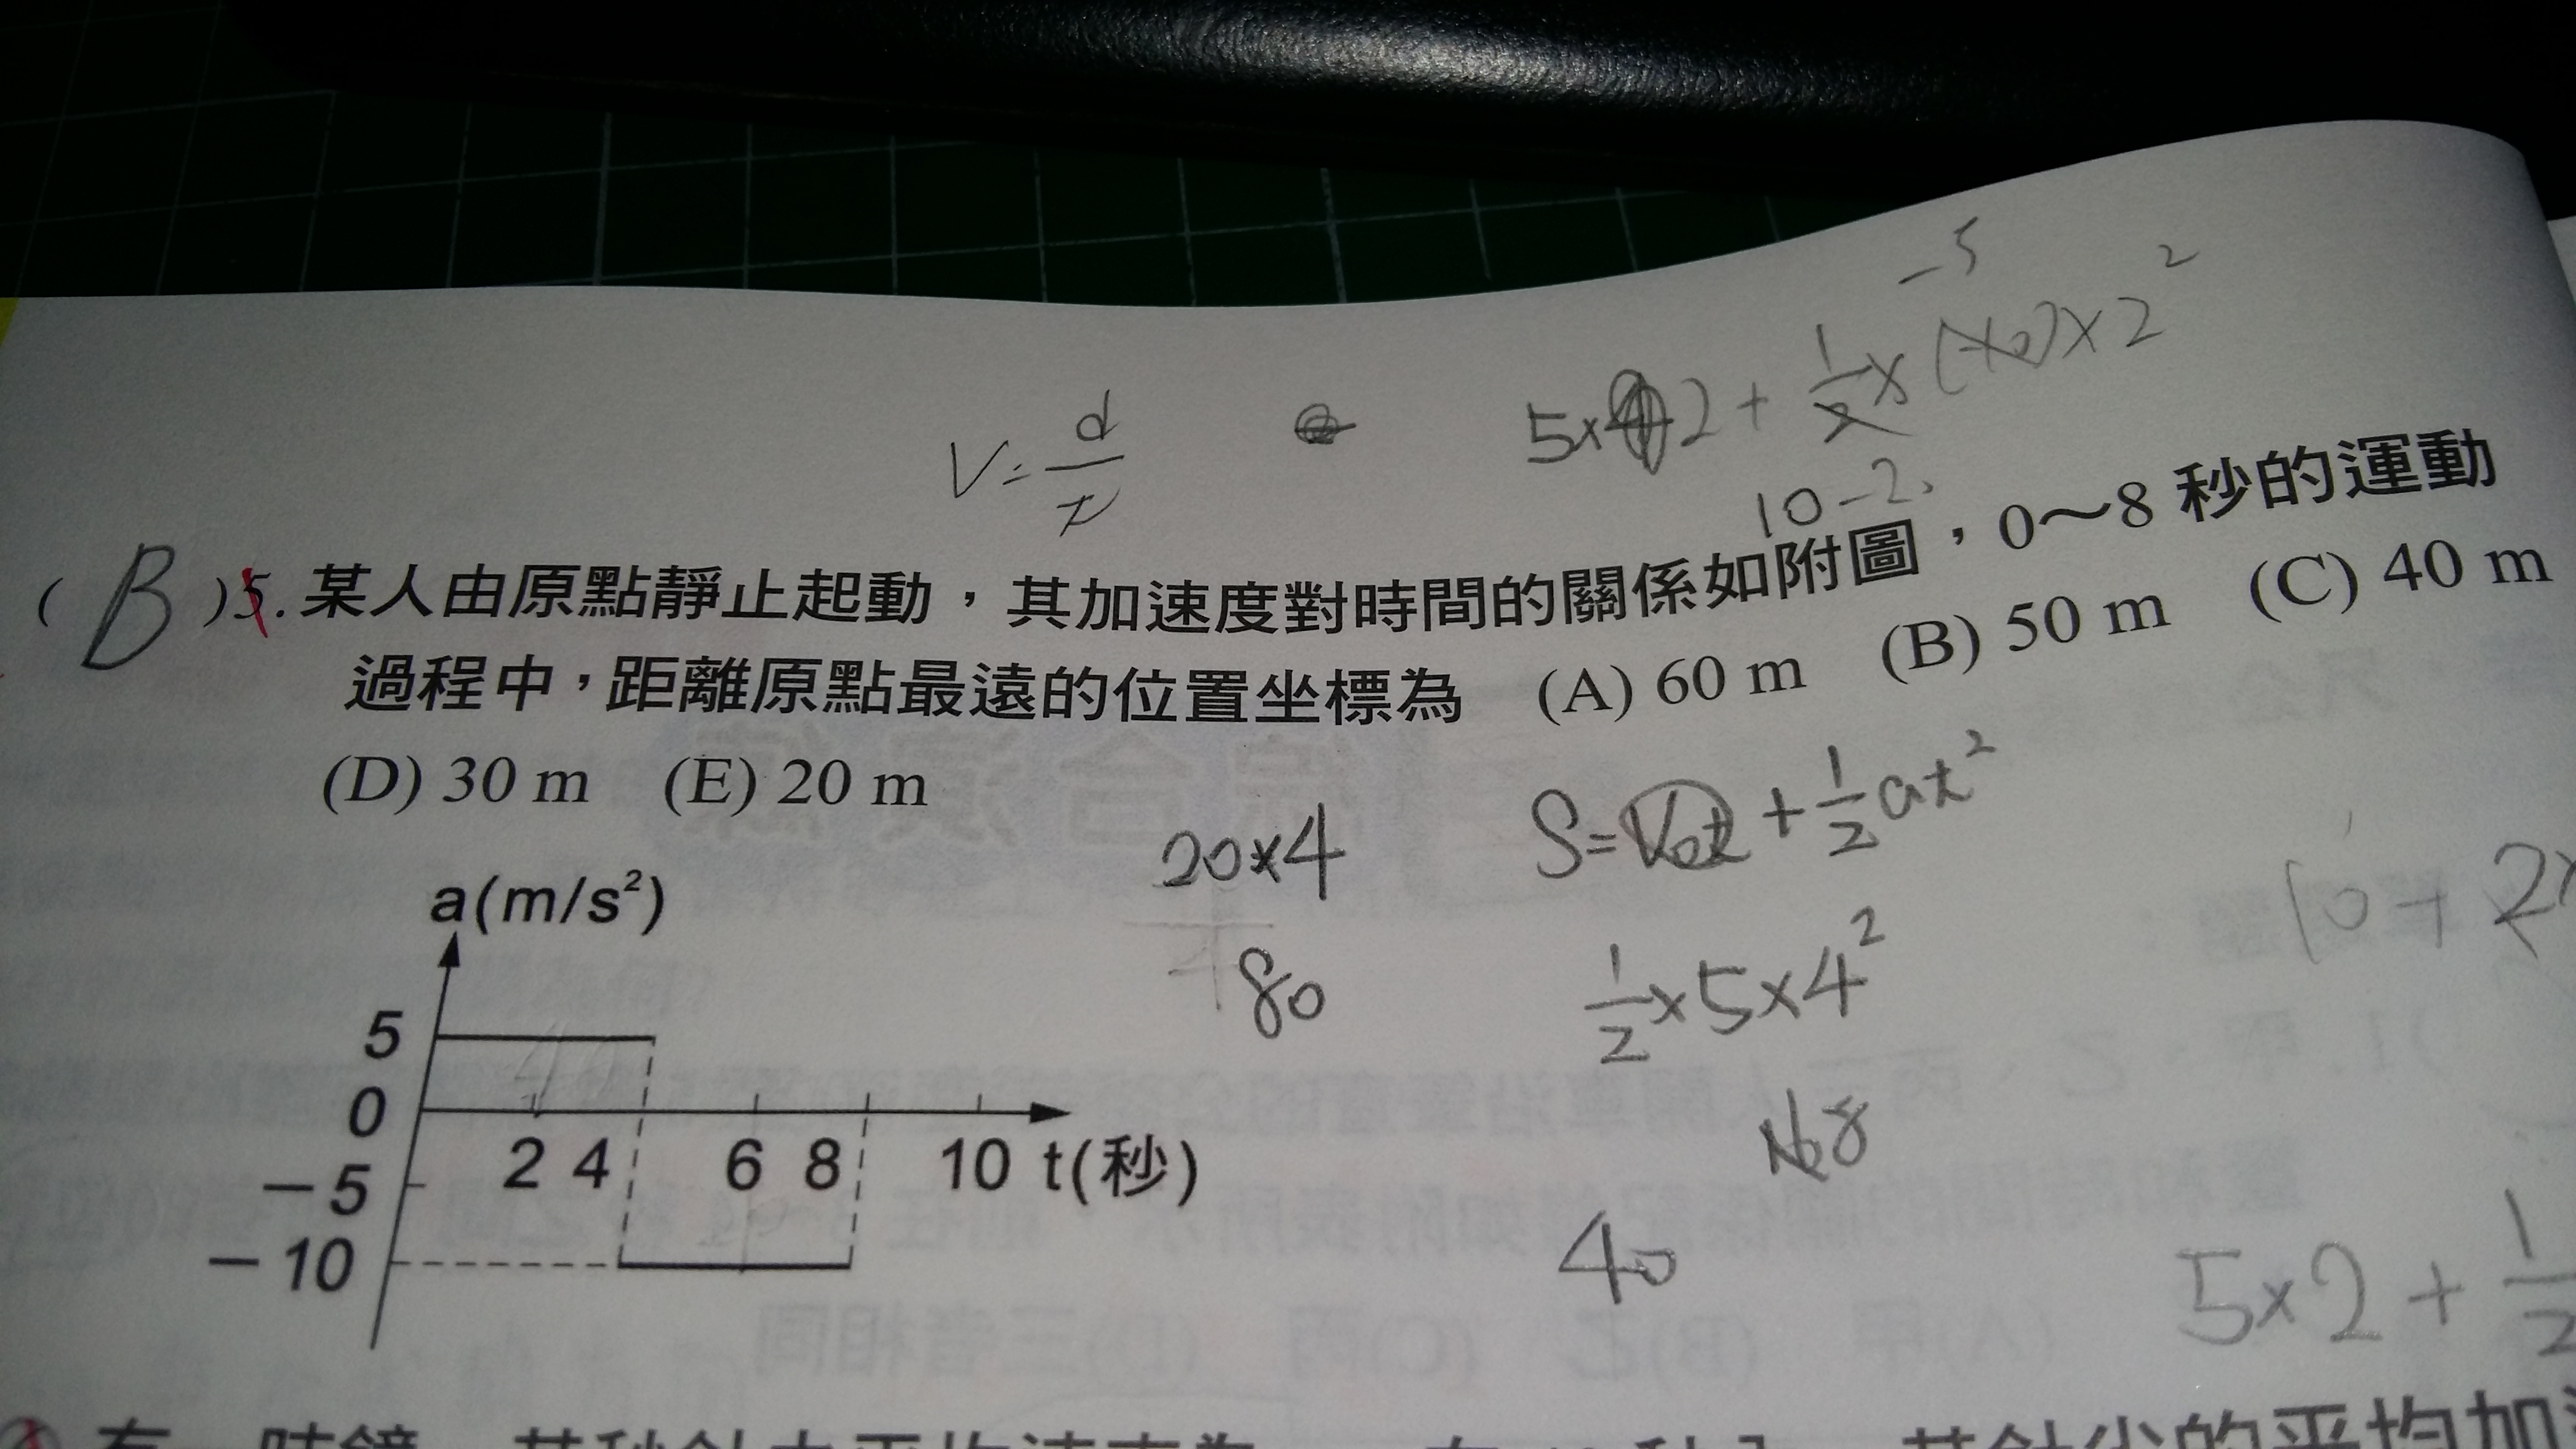 -5
5×2+1/2×(-10)×2²
V=d/t
10-2
( B )5. 某人由原點靜止起動，其加速度對時間的關係如附圖，0～8 秒的運動
過程中，距離原點最遠的位置坐標為 (A) 60 m (B) 50 m (C) 40 m
(D) 30 m (E) 20 m
20×4
S=V₀t+1/2at²
80
1/2×5×4²
8
40
10+2
5×2+1/2
a(m/s²)
5
0
-5
-10
2 4 6 8 10 t(秒)